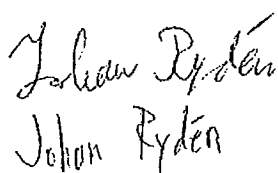 Johan Rydén
Johan Rydén